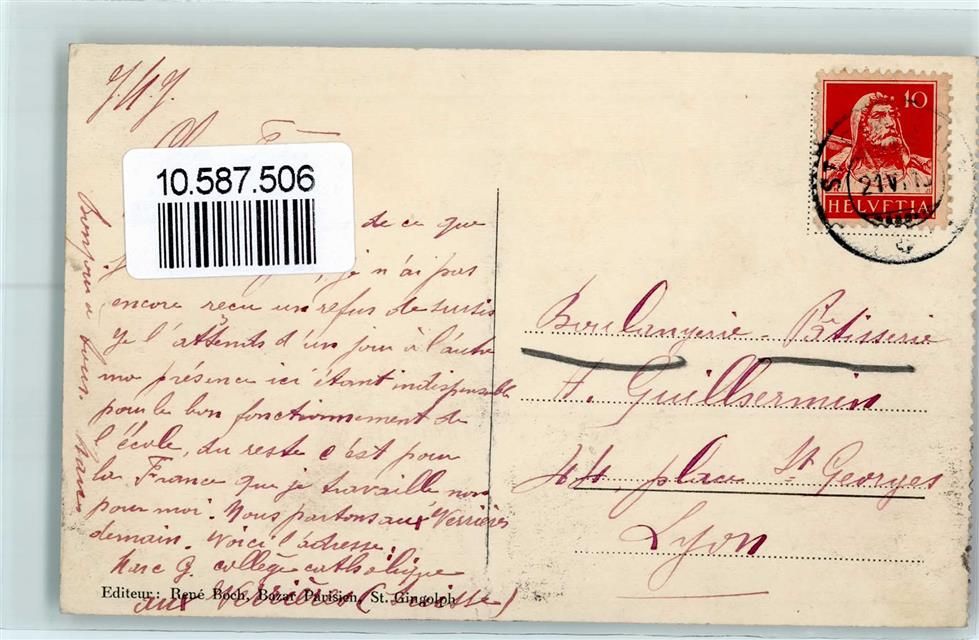 10.587.506
de ce que
je n'ai pas
encore reçu un refus de sursis
je l'attends d'un jour à l'autre
ma présence ici étant indispensable
pour le bon fonctionnement de
l'école, du reste c'est pour
la France que je travaille non
pour moi. Nous partons aux Verrières
demain. Voici l'adresse.
Marc G. collège catholique
aux Verrières (Suisse)
Bonjour à tous. Marc
Editeur: René Boch, Bazar Parisien, St. Gingolph
10
HELVETIA
Boulangerie - Pâtisserie
H. Guillsermin
44 place St Georges
Lyon